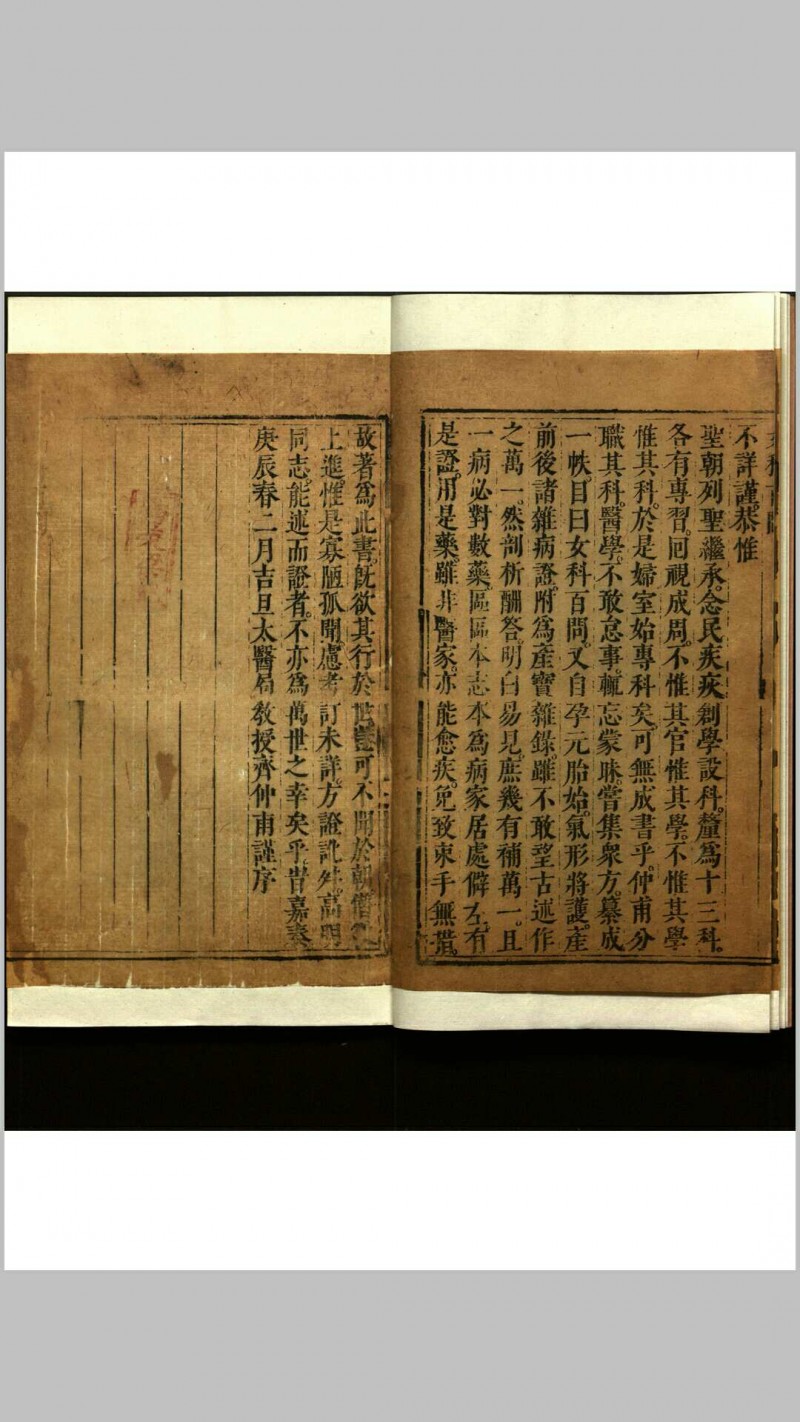 不詳謹恭惟
聖朝列聖繼承。念民疾疢。創學設科。釐爲十三科。
各有專習。囘視成周。不惟其官惟其學。不惟其學
惟其科。於是婦室始專科矣。可無成書乎。仲甫分
職其科。醫學。不敢怠事。輒忘蒙昧。嘗集衆方。纂成
一帙。目曰女科百問。又自孕元胎始。氣形將護。產
前後諸雜病證。附爲產寶雜錄。雖不敢望古述作
之萬一。然剖析酬答。明白易見。庶幾有補萬一。且
一病必對數藥。區區本志本爲病家居處僻左。有
是證。用是藥。雖非醫家。亦能愈疾。免致束手無措。
故著爲此書。旣欲其行於世。豈可不聞於朝。僭
上進。惟是寡陋孤聞。慮考訂未詳。方證訛舛。高明
同志。能述而證者。不亦爲萬世之幸矣乎。旹嘉泰
庚辰春二月吉旦太醫局敎授齊仲甫謹序